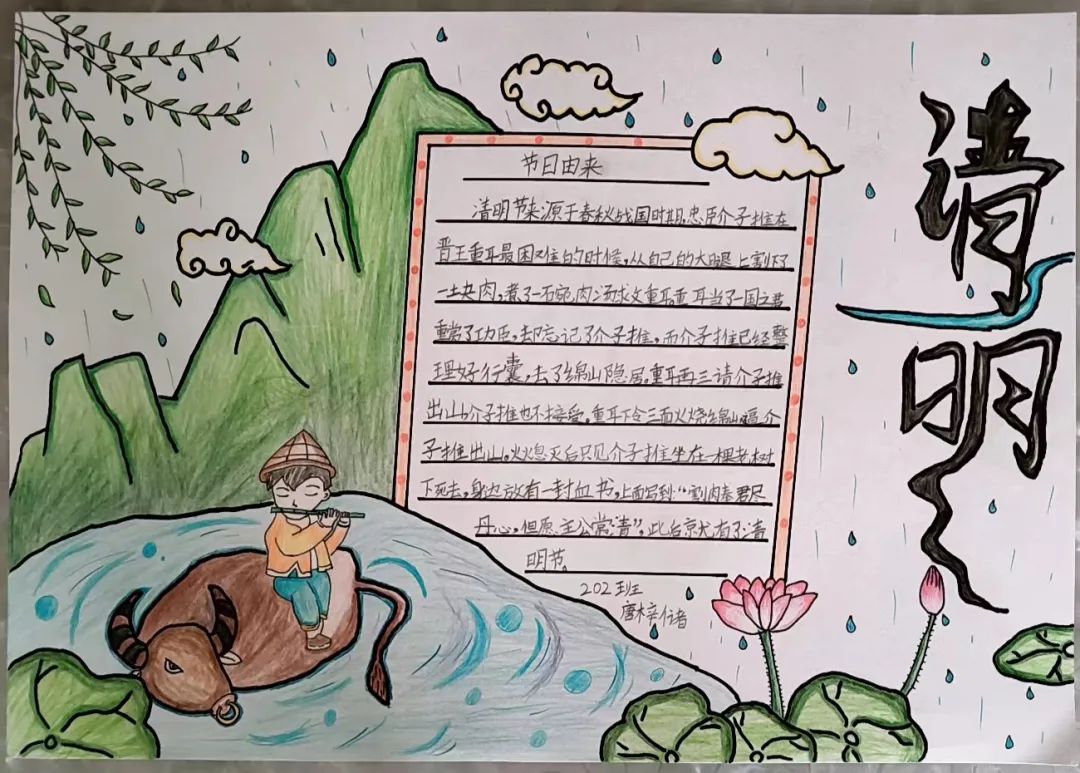 清明
节日由来
清明节来源于春秋战国时期,忠臣介子推在
晋王重耳最困难的时候,从自己的大腿上割下了
一块肉,煮了一碗肉汤救重耳,重耳当了一国之君
重赏了功臣,却忘记了介子推,而介子推已经整
理好行囊,去了绵山隐居,重耳再三请介子推
出山,介子推也不接受,重耳下令三面火烧绵山逼介
子推出山,火熄灭后只见介子推坐在一棵老树
下死去,身边放有一封血书,上面写到“割肉奉君尽
丹心,但愿主公常清”,此后就有了清
明节。
202班
唐梓